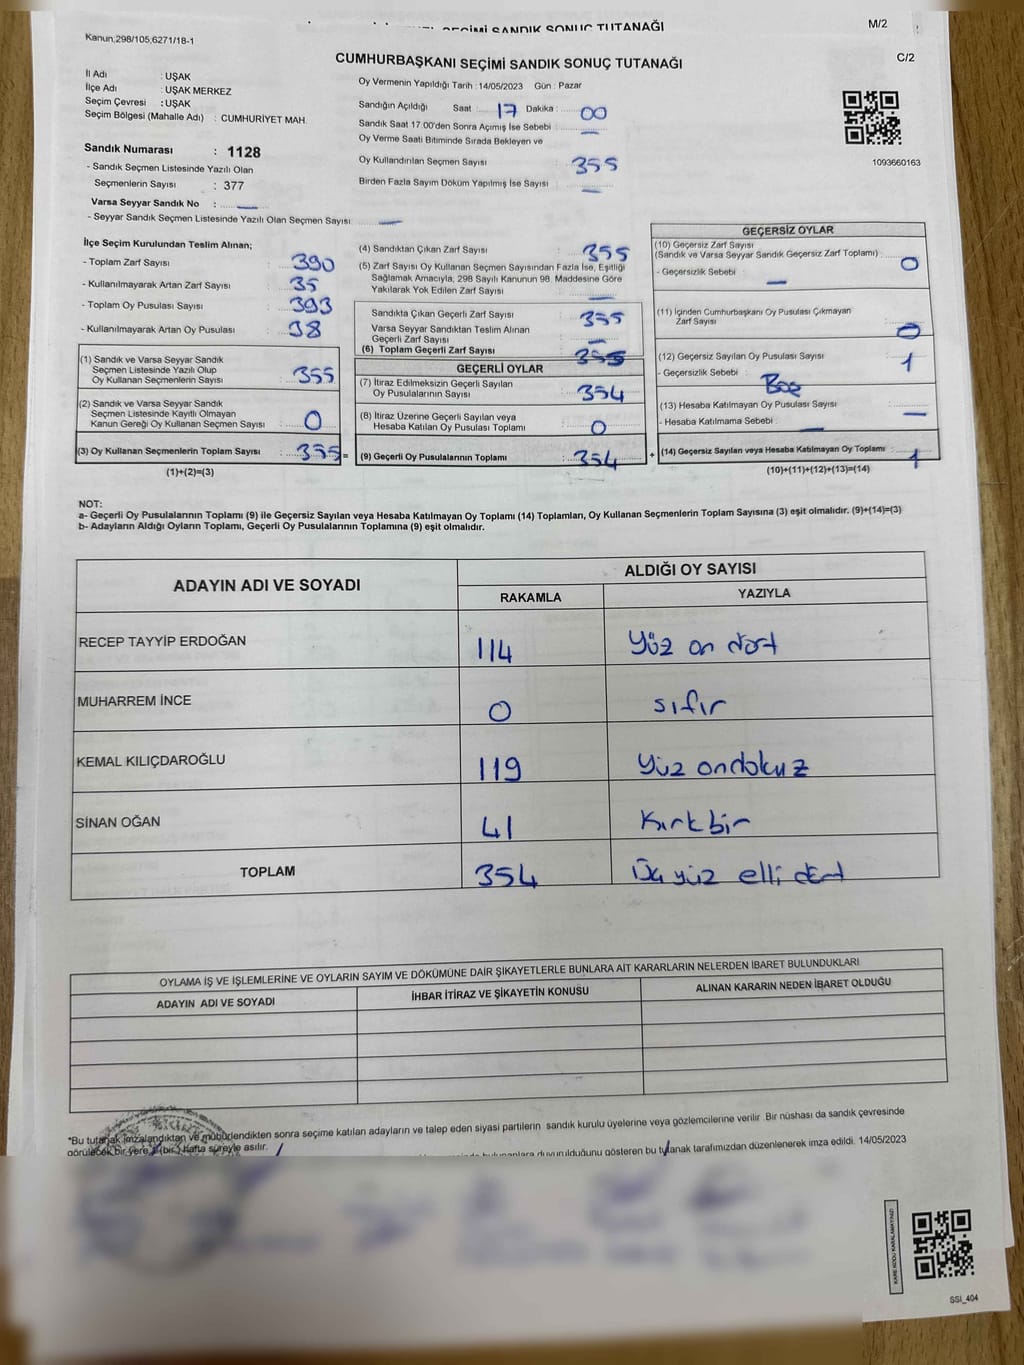 SEÇİMİ SANDIK SONUÇ TUTANAĞI
M/2
Kanun,298/105,6271/18-1
CUMHURBAŞKANI SEÇİMİ SANDIK SONUÇ TUTANAĞI
C/2
İl Adı : UŞAK
İlçe Adı : UŞAK MERKEZ
Seçim Çevresi : UŞAK
Seçim Bölgesi (Mahalle Adı) : CUMHURİYET MAH.
Sandık Numarası : 1128
- Sandık Seçmen Listesinde Yazılı Olan
Seçmenlerin Sayısı : 377
Varsa Seyyar Sandık No : —
- Seyyar Sandık Seçmen Listesinde Yazılı Olan Seçmen Sayısı —
Oy Vermenin Yapıldığı Tarih : 14/05/2023 Gün : Pazar
Sandığın Açıldığı Saat : 17 Dakika : 00
Sandık Saat 17.00'den Sonra Açımış İse Sebebi : —
Oy Verme Saati Bitiminde Sırada Bekleyen ve
Oy Kullandırılan Seçmen Sayısı : 355
Birden Fazla Sayım Döküm Yapılmış İse Sayısı : —
1093660163
İlçe Seçim Kurulundan Teslim Alınan;
- Toplam Zarf Sayısı : 390
- Kullanılmayarak Artan Zarf Sayısı : 35
- Toplam Oy Pusulası Sayısı : 393
- Kullanılmayarak Artan Oy Pusulası : 38
(1) Sandık ve Varsa Seyyar Sandık
Seçmen Listesinde Yazılı Olup
Oy Kullanan Seçmenlerin Sayısı : 355
(2) Sandık ve Varsa Seyyar Sandık
Seçmen Listesinde Kayıtlı Olmayan
Kanun Gereği Oy Kullanan Seçmen Sayısı : 0
(3) Oy Kullanan Seçmenlerin Toplam Sayısı : 355 =
(1)+(2)=(3)
(4) Sandıktan Çıkan Zarf Sayısı : 355
(5) Zarf Sayısı Oy Kullanan Seçmen Sayısından Fazla İse, Eşitliği
Sağlamak Amacıyla, 298 Sayılı Kanunun 98. Maddesine Göre
Yakılarak Yok Edilen Zarf Sayısı : —
Sandıkta Çıkan Geçerli Zarf Sayısı : 355
Varsa Seyyar Sandıktan Teslim Alınan
Geçerli Zarf Sayısı : —
(6) Toplam Geçerli Zarf Sayısı : 355
GEÇERLİ OYLAR
(7) İtiraz Edilmeksizin Geçerli Sayılan
Oy Pusulalarının Sayısı : 354
(8) İtiraz Üzerine Geçerli Sayılan veya
Hesaba Katılan Oy Pusulası Toplamı : 0
(9) Geçerli Oy Pusulalarının Toplamı : 354 +
GEÇERSİZ OYLAR
(10) Geçersiz Zarf Sayısı
(Sandık ve Varsa Seyyar Sandık Geçersiz Zarf Toplamı) : 0
- Geçersizlik Sebebi : —
(11) İçinden Cumhurbaşkanı Oy Pusulası Çıkmayan
Zarf Sayısı : 0
(12) Geçersiz Sayılan Oy Pusulası Sayısı : 1
- Geçersizlik Sebebi : Boş
(13) Hesaba Katılmayan Oy Pusulası Sayısı : —
- Hesaba Katılmama Sebebi : —
(14) Geçersiz Sayılan veya Hesaba Katılmayan Oy Toplamı : 1
(10)+(11)+(12)+(13)=(14)
NOT:
a- Geçerli Oy Pusulalarının Toplamı (9) ile Geçersiz Sayılan veya Hesaba Katılmayan Oy Toplamı (14) Toplamları, Oy Kullanan Seçmenlerin Toplam Sayısına (3) eşit olmalıdır. (9)+(14)=(3)
b- Adayların Aldığı Oyların Toplamı, Geçerli Oy Pusulalarının Toplamına (9) eşit olmalıdır.
ADAYIN ADI VE SOYADI
ALDIĞI OY SAYISI
RAKAMLA YAZIYLA
RECEP TAYYİP ERDOĞAN 114 Yüz on dört
MUHARREM İNCE 0 sıfır
KEMAL KILIÇDAROĞLU 119 Yüz ondokuz
SİNAN OĞAN 41 Kırkbir
TOPLAM 354 Üç yüz elli dört
OYLAMA İŞ VE İŞLEMLERİNE VE OYLARIN SAYIM VE DÖKÜMÜNE DAİR ŞİKAYETLERLE BUNLARA AİT KARARLARIN NELERDEN İBARET BULUNDUKLARI
ADAYIN ADI VE SOYADI İHBAR İTİRAZ VE ŞİKAYETİN KONUSU ALINAN KARARIN NEDEN İBARET OLDUĞU
*Bu tutanak imzalandıktan ve mühürlendikten sonra seçime katılan adayların ve talep eden siyasi partilerin sandık kurulu üyelerine veya gözlemcilerine verilir. Bir nüshası da sandık çevresinde
görülecek bir yere 1 (bir) hafta süreyle asılır.
bulunanlara duyurulduğunu gösteren bu tutanak tarafımızdan düzenlenerek imza edildi. 14/05/2023
KARE KODU KARALAMAYINIZ!
SSI_404